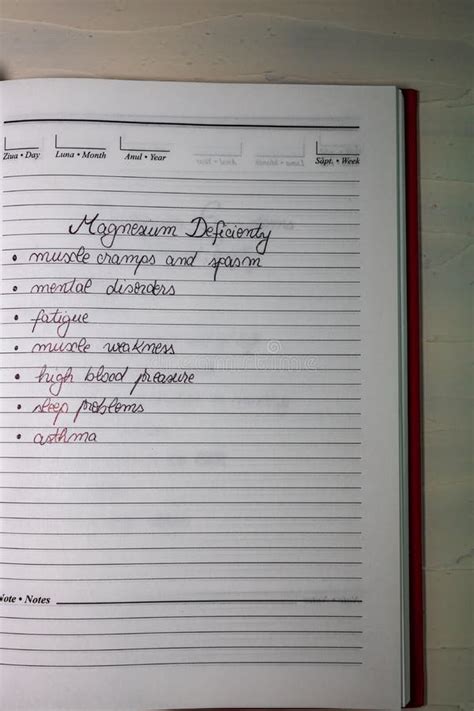 Ziua • Day Luna • Month Anul • Year Săpt. • Week
Magnesium Deficienty
• muscle cramps and spasm
• mental disorders
• fatigue
• muscle weakness
• high blood preasure
• sleep problems
• asthma
Note • Notes